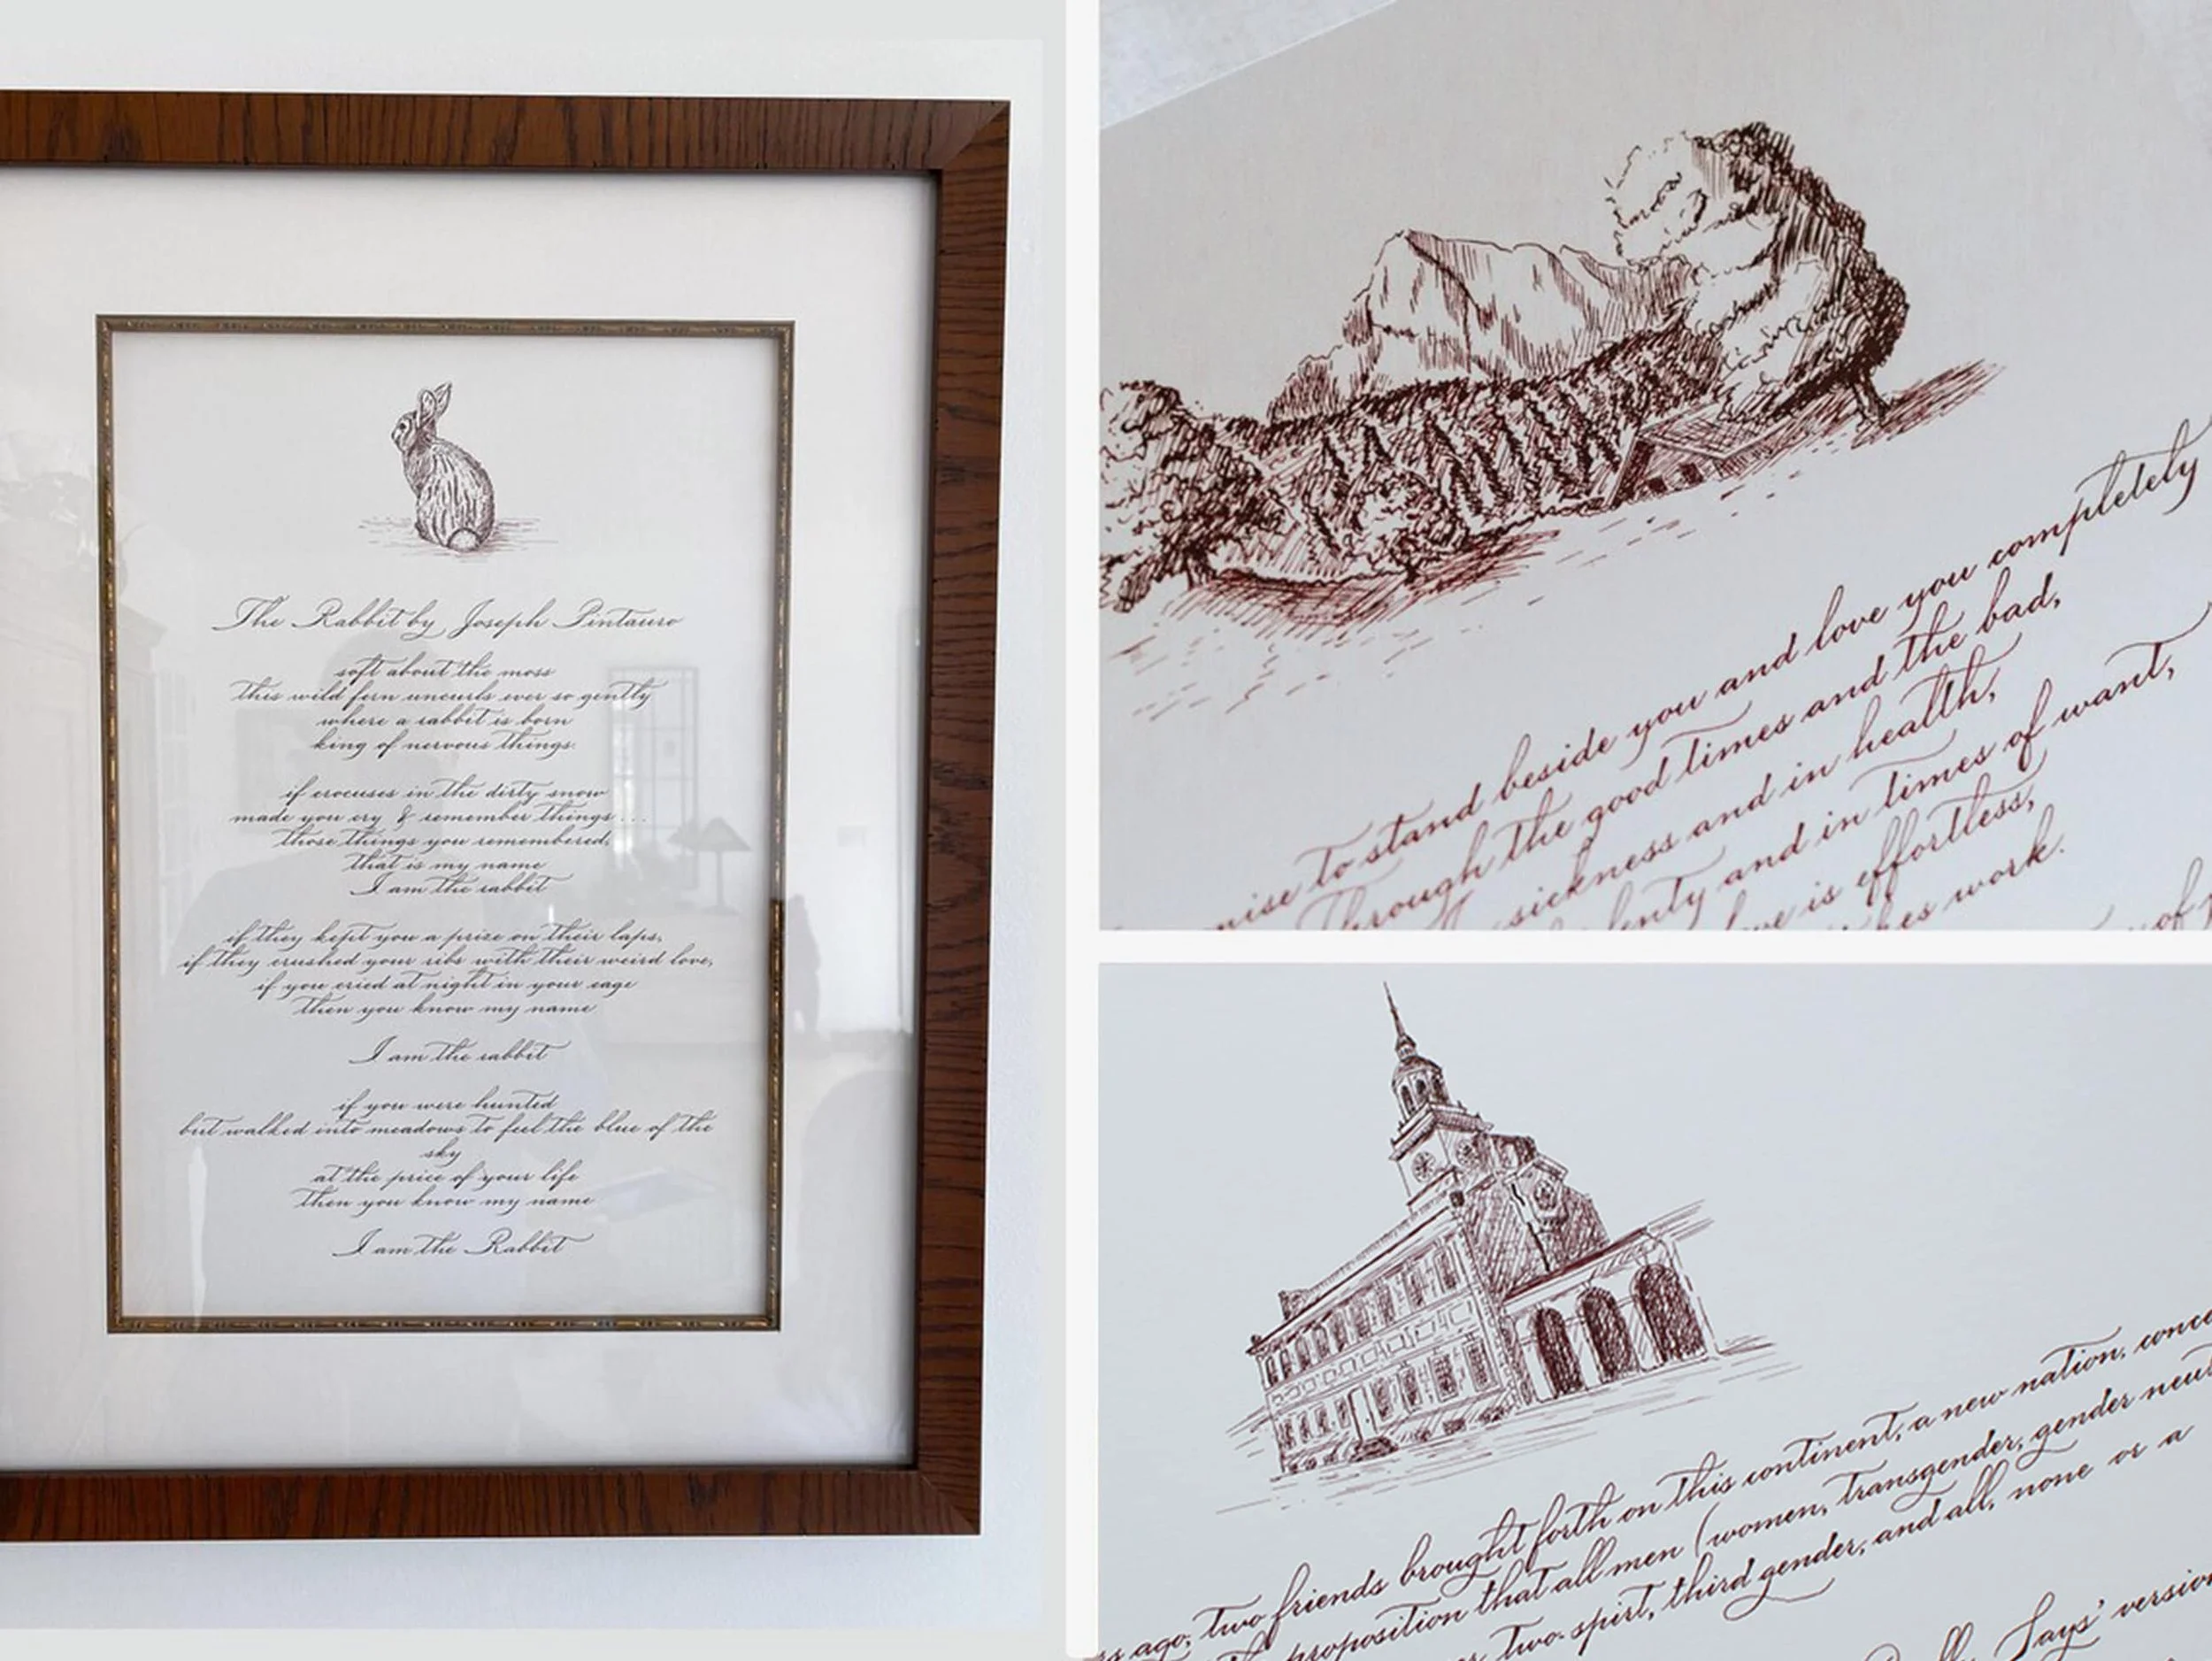 The Rabbit by Joseph Pintauro
soft about the moss
this wild fern uncurls ever so gently
where a rabbit is born
king of nervous things.
if crocuses in the dirty snow
made you cry & remember things . . .
those things you remembered,
that is my name
I am the rabbit
if they kept you a prize on their laps,
if they crushed your ribs with their weird love,
if you cried at night in your cage
then you know my name
I am the rabbit
if you were hunted
but walked into meadows to feel the blue of the
sky
at the price of your life
then you know my name
I am the Rabbit
to stand beside you and love you completely
Through the good times and the bad,
sickness and in health,
and in times of want,
is effortless,
work.
of
ago, two friends brought forth on this continent, a new nation,
proposition that all men (women, transgender, gender
two-spirit, third gender, and all, none or a
Says' version